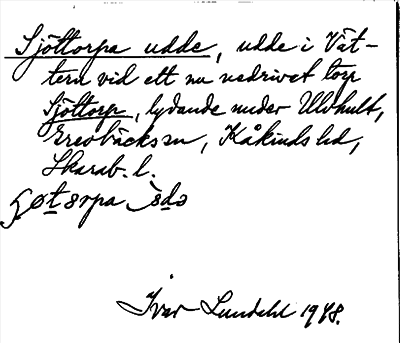 Sjöttorpa udde, udde i Vät-
tern vid ett nu nedrivet torp
Sjöttorp, lydande under Ulvhult,
Brevikssn, Kåkinds hd,
Skarab. l.
ɷøtərpa ùdə
Ivar Lundahl 1948.